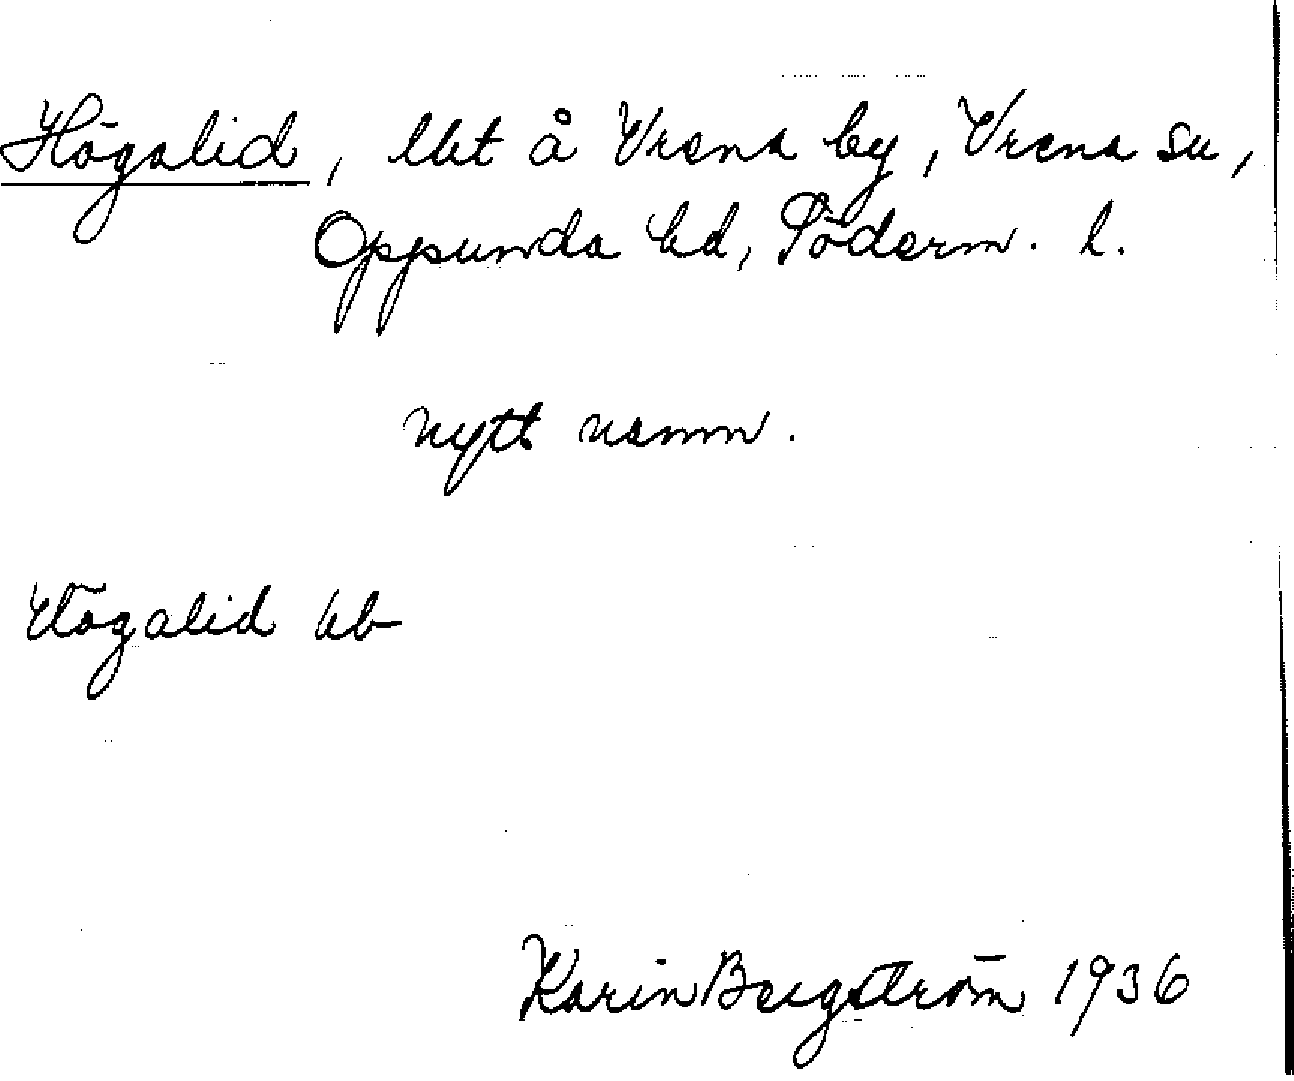 Högalid, lht å Vrena by, Vrena sn,
Oppunda hd, Söderm. l.
nytt namn.
Högalid kb
Karin Bergström 1936